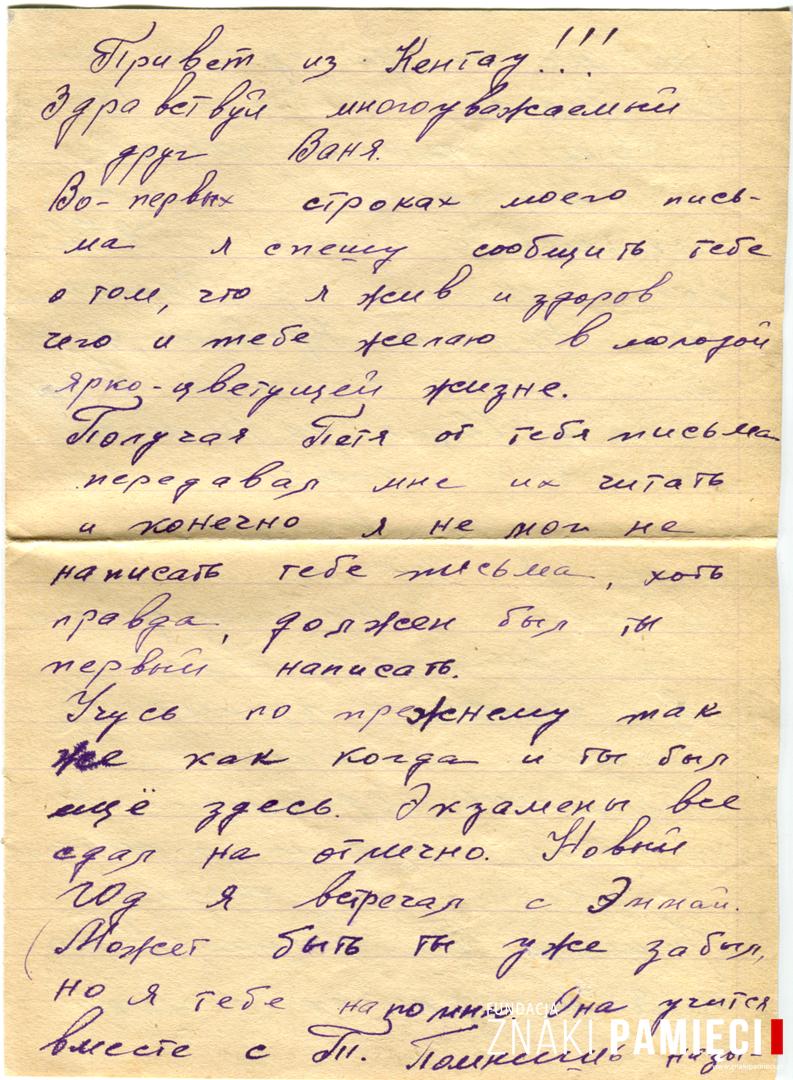 Привет из Кентау!!!
Здравствуй многоуважаемый
друг Ваня.
Во-первых строках моего пись-
ма я спешу сообщить тебе
о том, что я жив и здоров
чего и тебе желаю в молодой
ярко-цветущей жизне.
Получая Петя от тебя письма
передавал мне их читать
и конечно я не мог не
написать тебе письма, хоть
правда, должен был ты
первый написать.
Учусь по прежнему так
же как когда и ты был
ещё здесь. Экзамены все
сдал на отлично. Новый
год я встречал с Эммой.
(Может быть ты уже забыл,
но я тебе напомню. Она учится
вместе с Т. назы-
FUNDACJA
ZNAKI PAMIĘCI
www.znakipamieci.pl